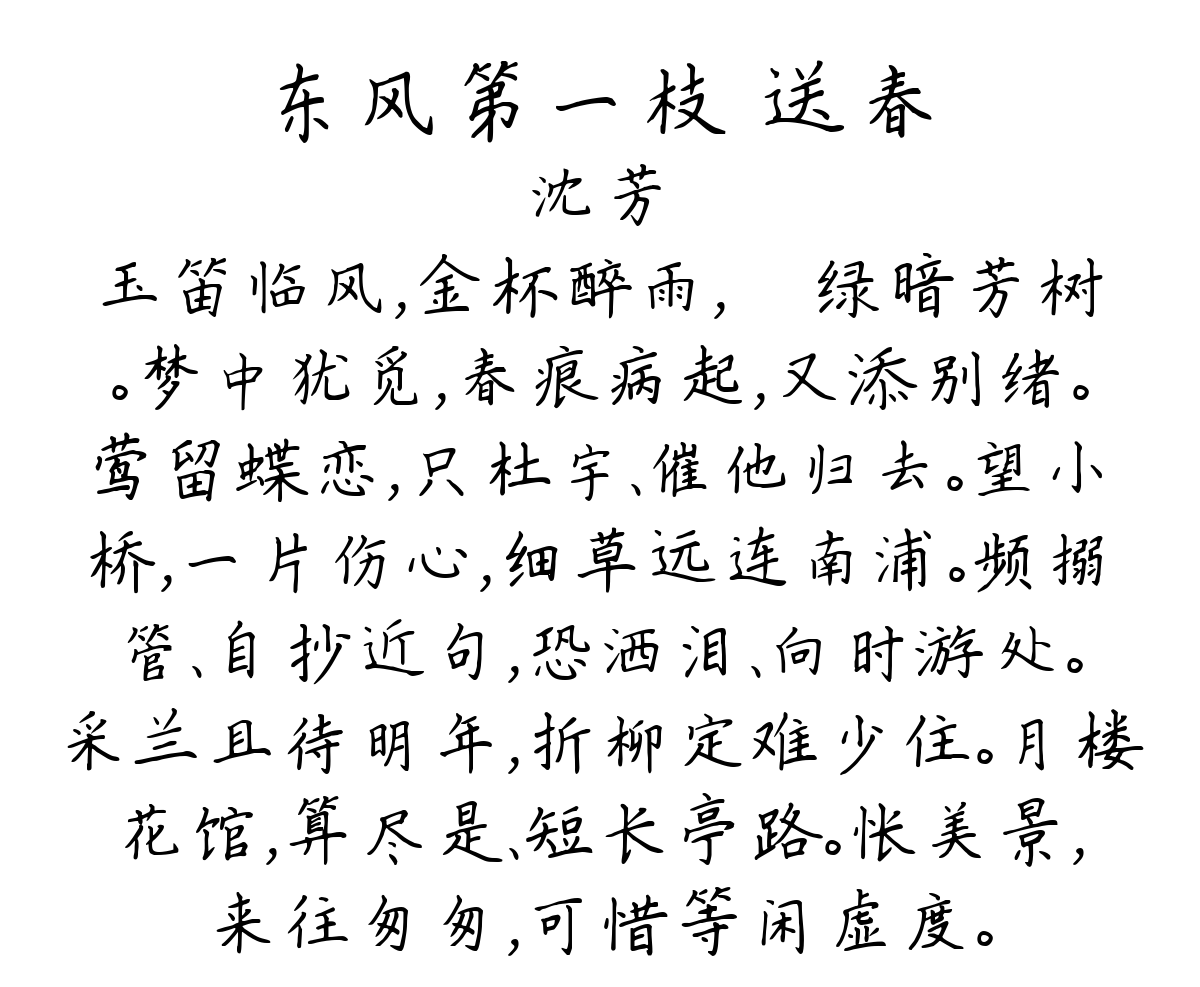 东风第一枝 送春
沈芳
玉笛临风,金杯醉雨, 绿暗芳树
。梦中犹觅,春痕病起,又添别绪。
莺留蝶恋,只杜宇、催他归去。望小
桥,一片伤心,细草远连南浦。频搦
管、自抄近句,恐洒泪、向时游处。
采兰且待明年,折柳定难少住。月楼
花馆,算尽是、短长亭路。怅美景,
来往匆匆,可惜等闲虚度。